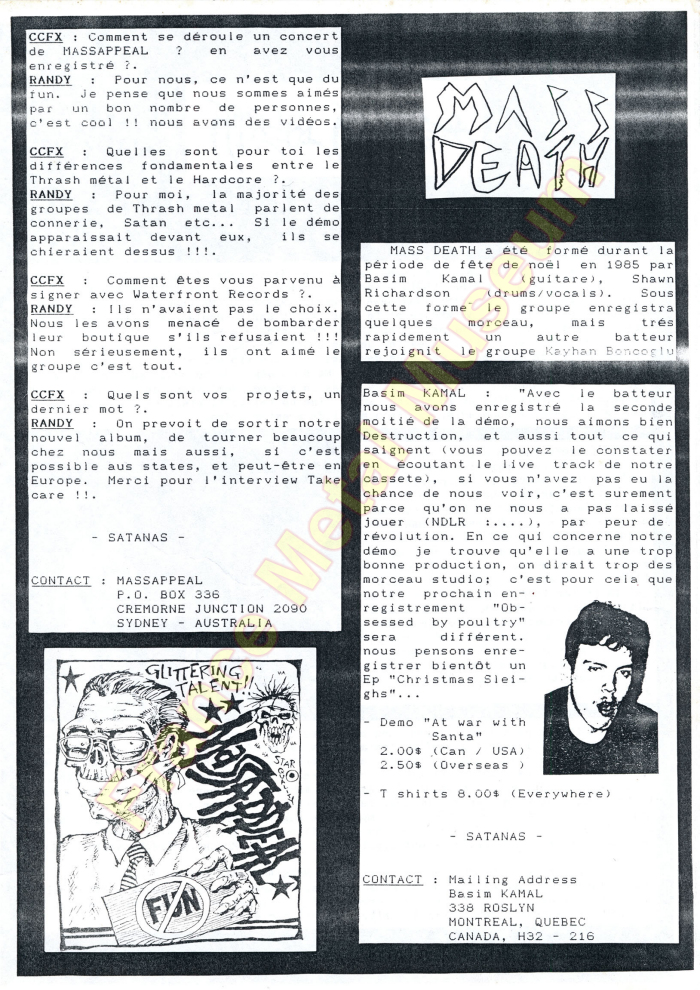 CCFX : Comment se déroule un concert
de MASSAPPEAL ? en avez vous
enregistré ?.
RANDY : Pour nous, ce n'est que du
fun. Je pense que nous sommes aimés
par un bon nombre de personnes,
c'est cool !! nous avons des vidéos.
CCFX : Quelles sont pour toi les
différences fondamentales entre le
Thrash métal et le Hardcore ?.
RANDY : Pour moi, la majorité des
groupes de Thrash metal parlent de
connerie, Satan etc... Si le démo
apparaissait devant eux, ils se
chieraient dessus !!!.
CCFX : Comment êtes vous parvenu à
signer avec Waterfront Records ?.
RANDY : Ils n'avaient pas le choix.
Nous les avons menacé de bombarder
leur boutique s'ils refusaient !!!
Non sérieusement, ils ont aimé le
groupe c'est tout.
CCFX : Quels sont vos projets, un
dernier mot ?.
RANDY : On prevoit de sortir notre
nouvel album, de tourner beaucoup
chez nous mais aussi, si c'est
possible aus states, et peut-être en
Europe. Merci pour l'interview Take
care !!.
- SATANAS -
CONTACT : MASSAPPEAL
P.O. BOX 336
CREMORNE JUNCTION 2090
SYDNEY - AUSTRALIA
GLITTERING
TALENT!!
STAR
MASSAPPEAL
FUN
MASS
DEATH
MASS DEATH a été formé durant la
période de fête de noël en 1985 par
Basim Kamal (guitare), Shawn
Richardson (drums/vocals). Sous
cette forme le groupe enregistra
quelques morceau, mais trés
rapidement un autre batteur
rejoignit le groupe Kayhan Boncoglu
Basim KAMAL : "Avec le batteur
nous avons enregistré la seconde
moitié de la démo, nous aimons bien
Destruction, et aussi tout ce qui
saignent (vous pouvez le constater
en écoutant le live track de notre
cassete), si vous n'avez pas eu la
chance de nous voir, c'est surement
parce qu'on ne nous a pas laissé
jouer (NDLR :....), par peur de
révolution. En ce qui concerne notre
démo je trouve qu'elle a une trop
bonne production, on dirait trop des
morceau studio; c'est pour cela que
notre prochain en-
registrement "Ob-
sessed by poultry"
sera différent.
nous pensons enre-
gistrer bientôt un
Ep "Christmas Slei-
ghs"...
- Demo "At war with
Santa"
2.00$ (Can / USA)
2.50$ (Overseas )
- T shirts 8.00$ (Everywhere)
- SATANAS -
CONTACT : Mailing Address
Basim KAMAL
338 ROSLYN
MONTREAL, QUEBEC
CANADA, H32 - 216
France Metal Museum